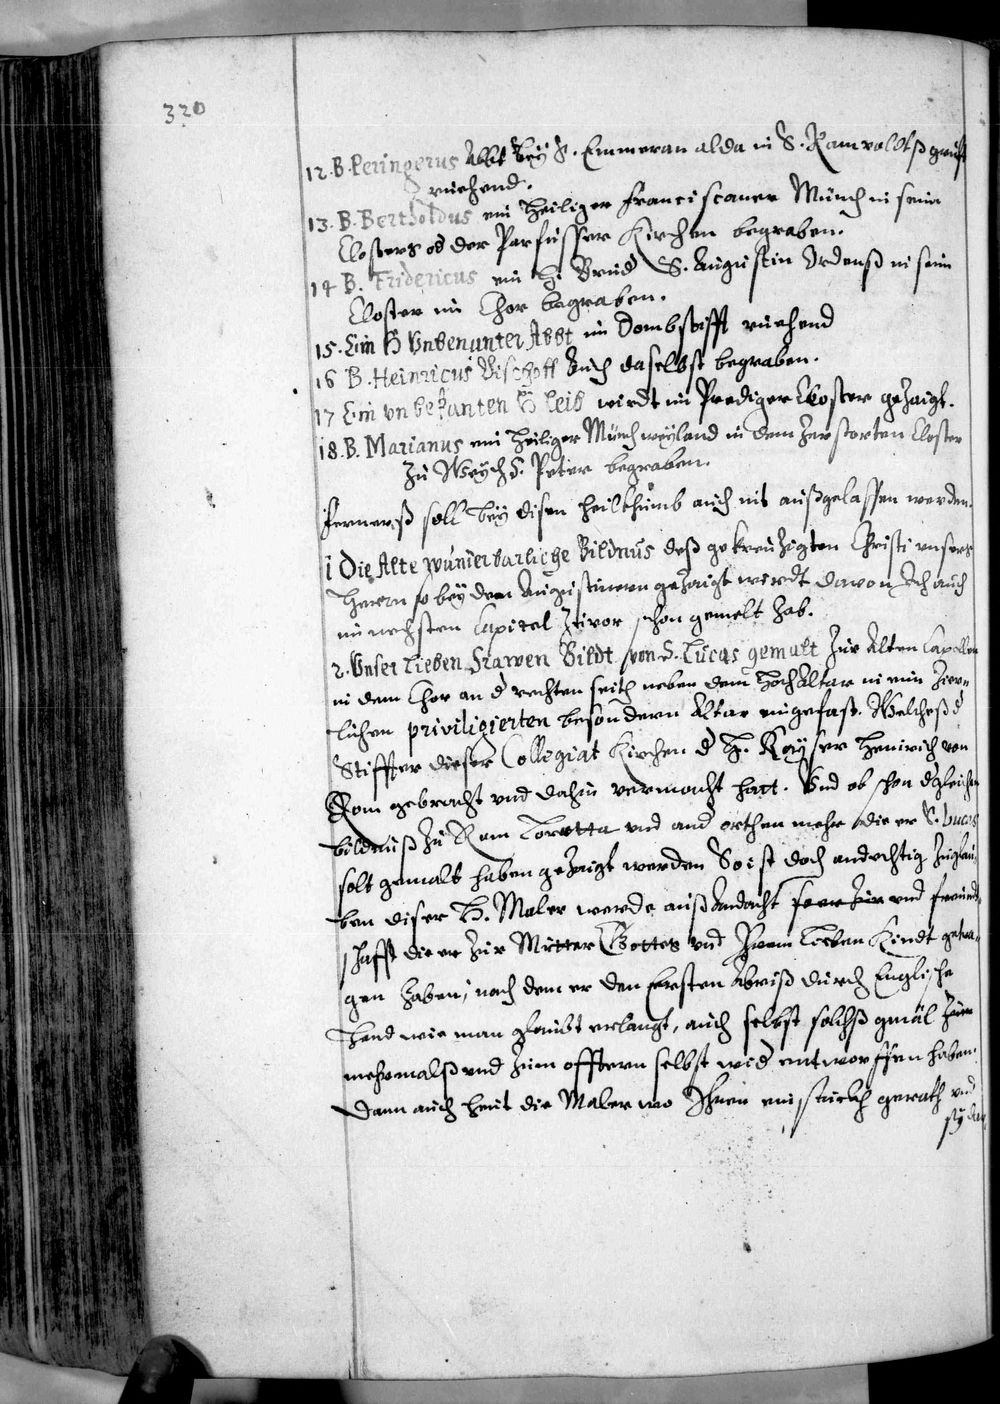 320
12. B. Peringerus Abbt bey S. Emmeran alda in S. Ramvoldtß grufft
ruehend.
13. B. Bertholdus ein Heiliger Franciscaner Münch in seim
Closters od der Parfusser Kirchen begraben.
14 B. Fridericus ein H. Brud S. Augustin Ordenß in seim
Closter im Chor begraben.
15. Ein H Unbenanter Abbt im Dombstifft ruehend
16 B. Heinricus Bischoff Auch daselbst begraben.
17 Ein unbekanten H leib wirdt im Prediger Closter gezaigt.
18. B. Marianus ein Heiliger Münch weyland in dem zerstorten Closter
zu Weych S. Peter begraben.
Ferners soll bey disen heilthumb auch nit außgelassen werden.
1 Die Alte wunderbarliche Bildnus deß gekreuzigten Christi unsers
Herrn so bey den Augustinern gezaigt wirdt davon Ich auch
im nechsten Capitel zuvor schon gemelt hab.
2. Unser lieben Frawen Bildt von S. Lucas gemalt zur Alten Capellen
in dem Chor an d rechten seith neben dem HochAltar in ein zier¬
lichen priviligierten besondern Altar eingefast. Welcheß d
Stiffter dieser Collegiat Kirchen d H. Kayser Heinrich von
Rom gebracht und dahin vermacht hatt. Und ob schon dgleichen
bildnuß zu Rom Loretta und and orthen mehr die er S. Lucas
solt gemalt haben gezaigt werden So ist doch andechtig zuglau¬
ben diser H. Maler werde auß Andacht und freundt¬
schafft die er zur Mutter Gottes und Ihrem lieben Kindt getra¬
gen haben, nach dem er den Ersten Abriß durch Englische
Hand wie man glaubt erlangt, auch selbst solchß gmäl zum
mehrmalß und zum offtern selbst wid entworffen haben.
Dann auch heut die Maler wo Ihnen ein stuckh gerath und
sy